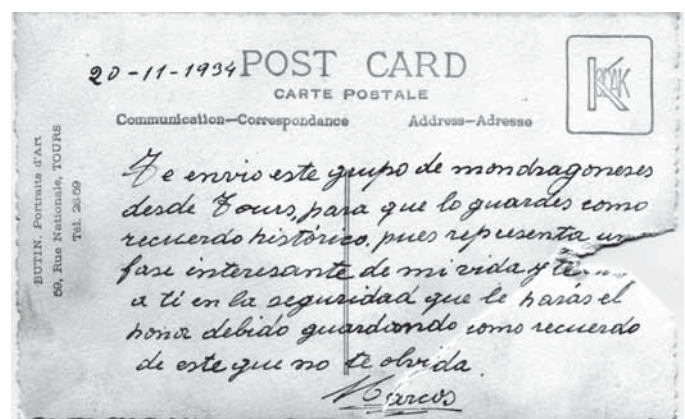 20-11-1934
POST CARD
CARTE POSTALE
Communication—Correspondance
Address—Adresse
KODAK
BUTIN. Portraits d'Art
59, Rue Nationale, TOURS
Tél. 26-59
Te envio este grupo de mondragoneses
desde Tours, para que lo guardes como
recuerdo histórico, pues representa un
fase interesante de mi vida y
a tí en la seguridad que le harás el
honor debido guardando como recuerdo
de este que no te olvida.
Marcos